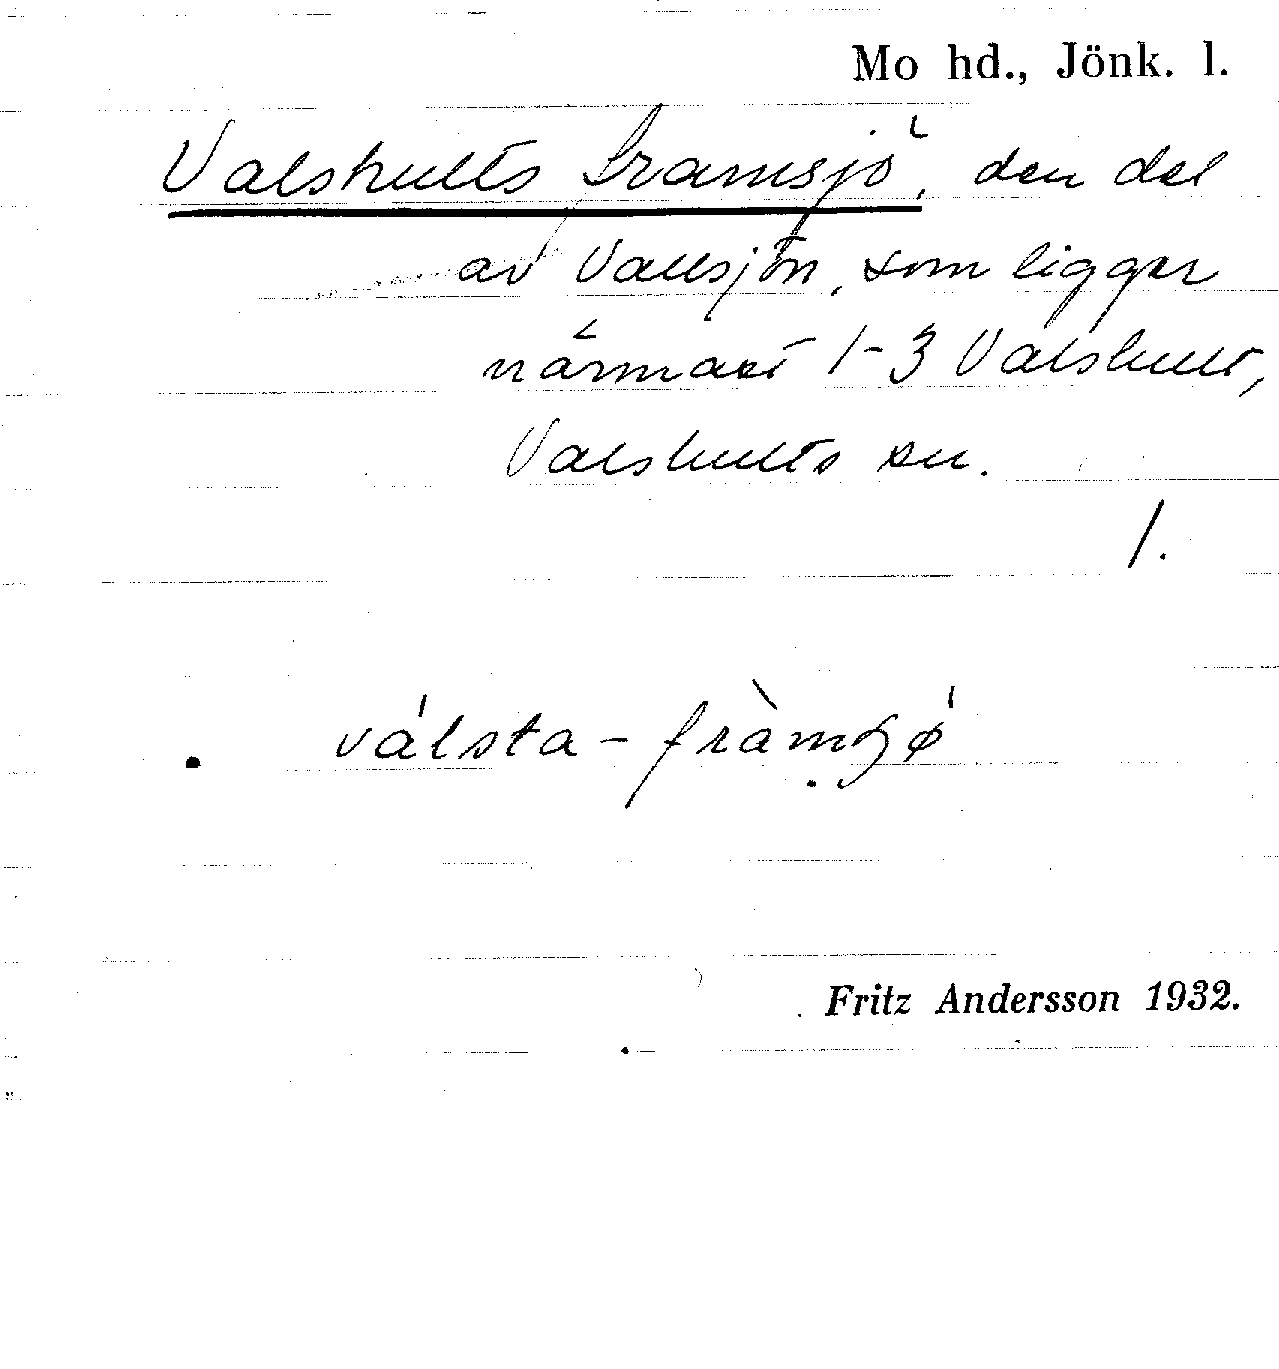 Mo hd., Jönk. l.
Valshults framsjö, den del
av Vallsjön, som ligger
närmast 1-3 Valshult,
Valshults sn.
1.
válsta - fràmʂǿ
Fritz Andersson 1932.